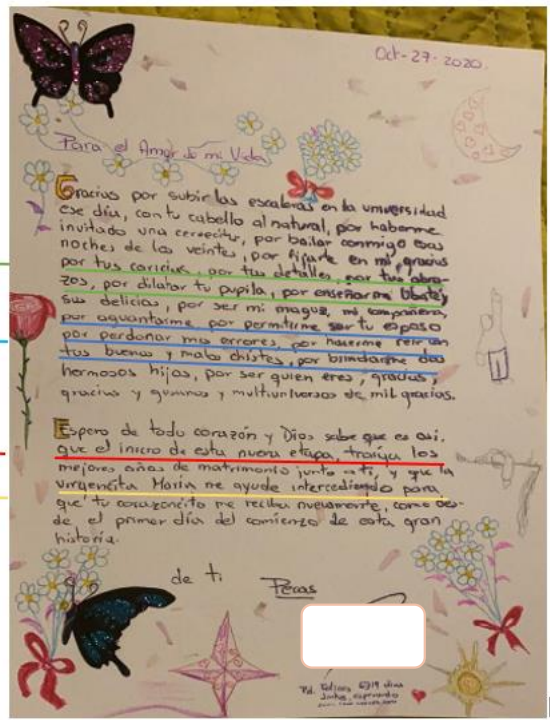 Oct-27-2020.
Para el Amor de mi Vida
Gracias por subir las escaleras en la universidad
ese día, con tu cabello al natural, por haberme
invitado una cervecita, por bailar conmigo esas
noches de los veintes, por fijarte en mi, gracias
por tus caricias, por tus detalles, por tus abra-
zos, por dilatar tu pupila, por enseñarme
sus delicias, por ser mi magus, mi compañera,
por aguantarme por permitirme ser tu esposo
por perdonar mis errores, por hacerme reir con
tus buenos y malos chistes, por brindarme dos
hermosos hijos, por ser quien eres, gracias,
gracias y y multiuniversos de mil gracias.
Espero de todo corazón y Dios sabe que es asi,
que el inicio de esta nueva etapa, traiga los
mejores años de matrimonio junto a ti, y que la
virgencita María me ayude intercediendo para
que tu corazoncito me reciba nuevamente, como des-
de el primer día del comienzo de esta gran
historia.
de ti Pecas
Pd. Felices 6719 días
Juntos, esperando